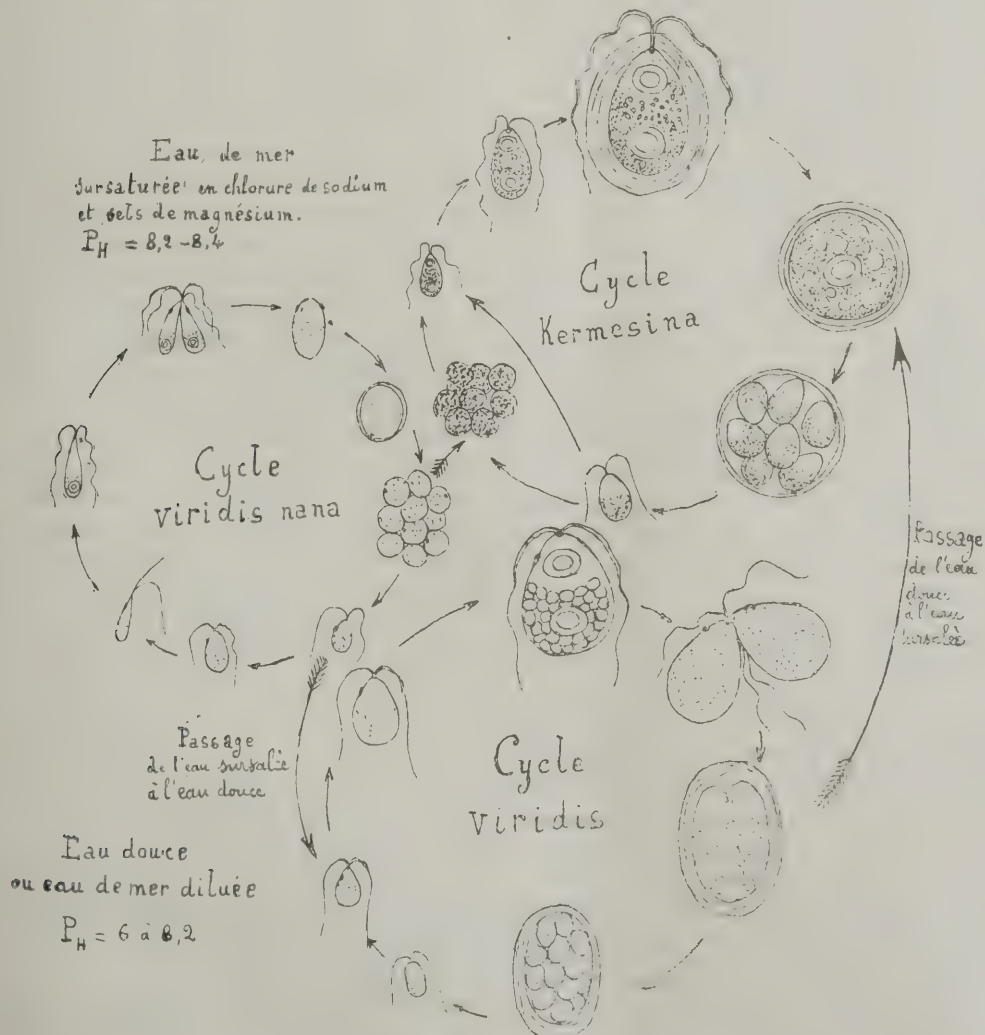 Eau de mer
sursaturée en chlorure de sodium
et sels de magnésium.
P_H = 8,2 - 8,4
Cycle
Kermesina
Cycle
viridis nana
Passage
de l'eau
douce
à l'eau
sursalée
Passage
de l'eau sursalée
à l'eau douce
Cycle
viridis
Eau douce
ou eau de mer diluée
P_H = 6 à 8,2